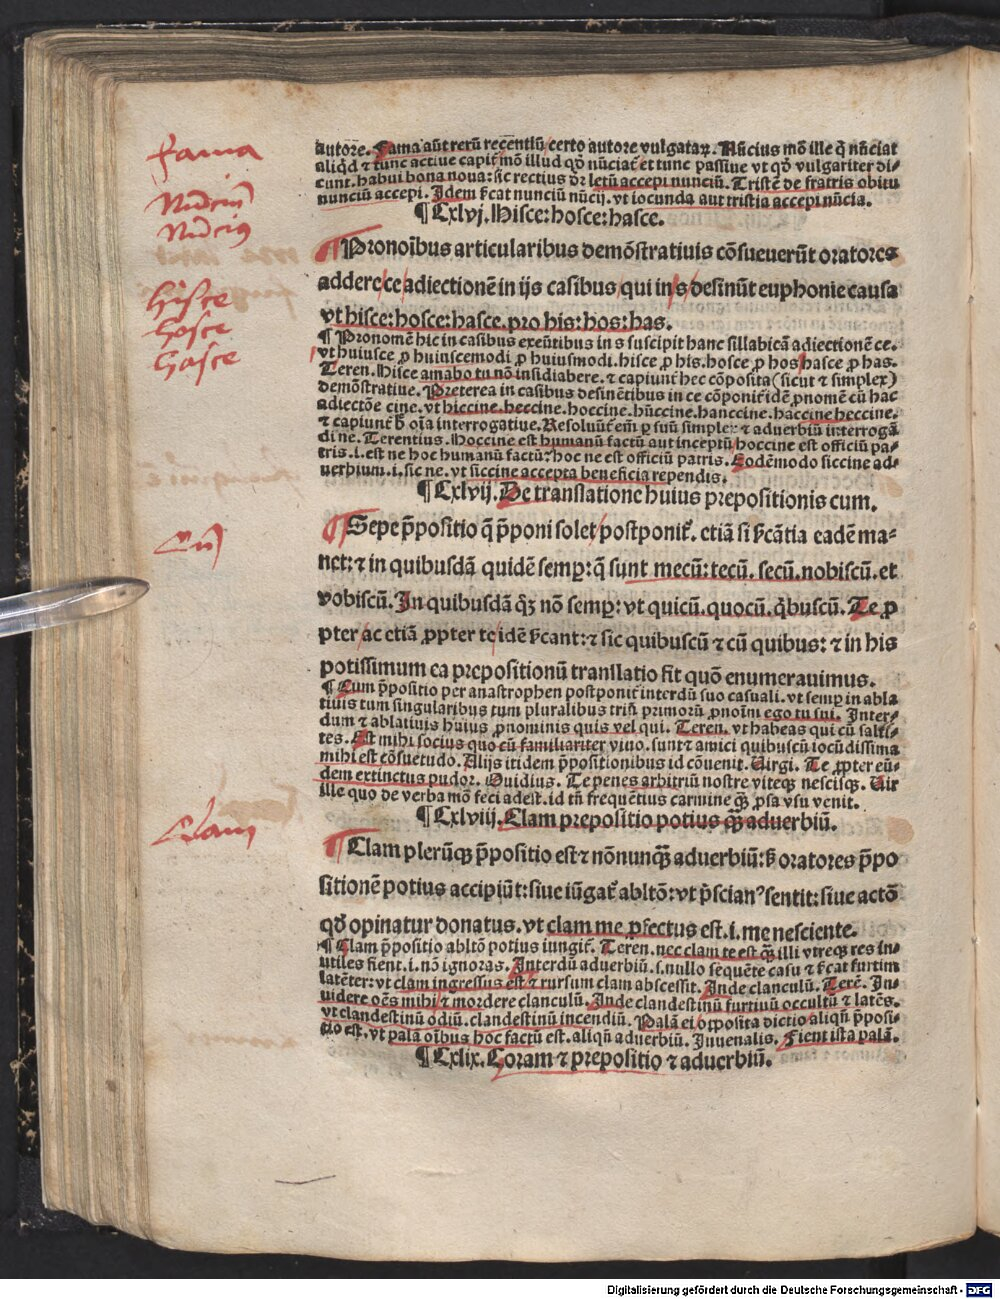 autorē. Fama aūt rerū recentiū certo autore vulgataꝝ. Nūcius mō ille q̄ nūciat
aliqd ⁊ tunc actiue capit̄ mō illud qd̄ nūciat̄ et tunc passiue vt qd̄ vulgariter di-
cunt. habui bona noua: sic rectius dr̄ letū accepi nunciū. Tristē de fratris obitu
nunciū accepi. Idem s̄cat nunciū nūcij. vt iocunda aut tristia accepi nūcia.
¶ Cxlvj. Hisce: hosce: hasce.
¶ Pronoībus articularibus demōstratiuis cōsueuerūt oratores
addere ce adiectionē in ijs casibus qui in s desinūt euphonie causa
vt hisce: hosce: hasce. pro his: hos: has.
¶ Pronomē hic in casibus exeūtibus in s suscipit hanc sillabicā adiectionē ce.
vt huiusce ꝓ huiuscemodi ꝓ huiusmodi. hisce ꝓ his. hosce ꝓ hos hasce ꝓ has.
Teren. Hisce amabo tu nō insidiabere. ⁊ capiunt̄ hec cōposita (sicut ⁊ simplex)
demōstratiue. Preterea in casibus desinētibus in ce cōponit̄ idē ꝓnomē cū hac
adiectōe cine. vt hiccine. heccine. hoccine. hūccine. hanccine. haccine heccine.
⁊ capiunt̄ h̄ oīa interrogatiue. Resoluūt̄ em̄ ꝑ suū simplex ⁊ aduerbiū interrogā
di ne. Terentius. Hoccine est humanū factū aut inceptū hoccine est officiū pa-
tris. i. est ne hoc humanū factū? hoc ne est officiū patris. Eodēmodo siccine ad-
uerbium. i. sic ne. vt siccine accepta beneficia rependis.
¶ Cxlvij. De translatione huius prepositionis cum.
¶ Sepe p̄positio q̄ p̄poni solet postponit̄. etiā si s̄cātia eadē ma-
net: ⁊ in quibusdā quidē semꝑ: q̄ sunt mecū: tecū. secū. nobiscū. et
vobiscū. In quibusdā qꝫ nō semꝑ: vt quicū. quocū. qbuscū. Te ꝓ
pter ac etiā ꝓpter te idē s̄cant: ⁊ sic quibuscū ⁊ cū quibus: ⁊ in his
potissimum ea prepositionū translatio fit quō enumerauimus.
¶ Cum p̄positio per anastrophen postponit̄ interdū suo casuali. vt semꝑ in abla
tiuis tum singularibus tum pluralibus triū primorū ꝓnoīm ego tu sui. Inter-
dum ⁊ ablatiuis huius ꝓnominis quis vel qui. Teren. vt habeas qui cū salti-
tes. Est mihi socius quo cū familiariter viuo. sunt ⁊ amici quibuscū iocūdissima
mihi est cōsuetudo. Alijs itidem p̄positionibus id cōuenit. Uirgi. Te ꝓpter eū-
dem extinctus pudor. Ouidius. Te penes arbitriū nostre viteqꝫ nescisqꝫ. Uir
ille quo de verba mō feci adest. id tn̄ frequētius carmine qꝫ̄ ꝓsa vsu venit.
¶ Cxlviij. Clam prepositio potius qꝫ̄ aduerbiū.
¶ Clam plerūqꝫ p̄positio est ⁊ nōnunqꝫ̄ aduerbiū: h̄ oratores p̄po
sitionē potius accipiūt: siue iūgat̄ abltō: vt p̄scianꝰ sentit: siue actō
qd̄ opinatur donatus. vt clam me ꝓfectus est. i. me nesciente.
¶ Clam p̄positio abltō potius iungit̄. Teren. nec clam te est qꝫ̄ illi vtreqꝫ res in-
utiles sient. i. nō ignoras. Interdū aduerbiū. s. nullo sequēte casu ⁊ s̄cat furtim
latēter: vt clam ingressus est ⁊ rursum clam abscessit. Inde clanculū. Terē. In-
uidere oēs mihi ⁊ mordere clanculū. Inde clandestinū furtiuū occultū ⁊ latēs.
vt clandestinū odiū. clandestinū incendiū. Palā ei opposita dictio aliqn̄ p̄posi-
tio est. vt palā oībus hoc factū est. aliqn̄ aduerbiū. Iuuenalis. Fient ista palā.
¶ Cxlix. Coram ⁊ prepositio ⁊ aduerbiū.
fama
Nūcium
Nūcius
hisce
hosce
hasce
Cū
Clam
Digitalisierung gefördert durch die Deutsche Forschungsgemeinschaft - DFG